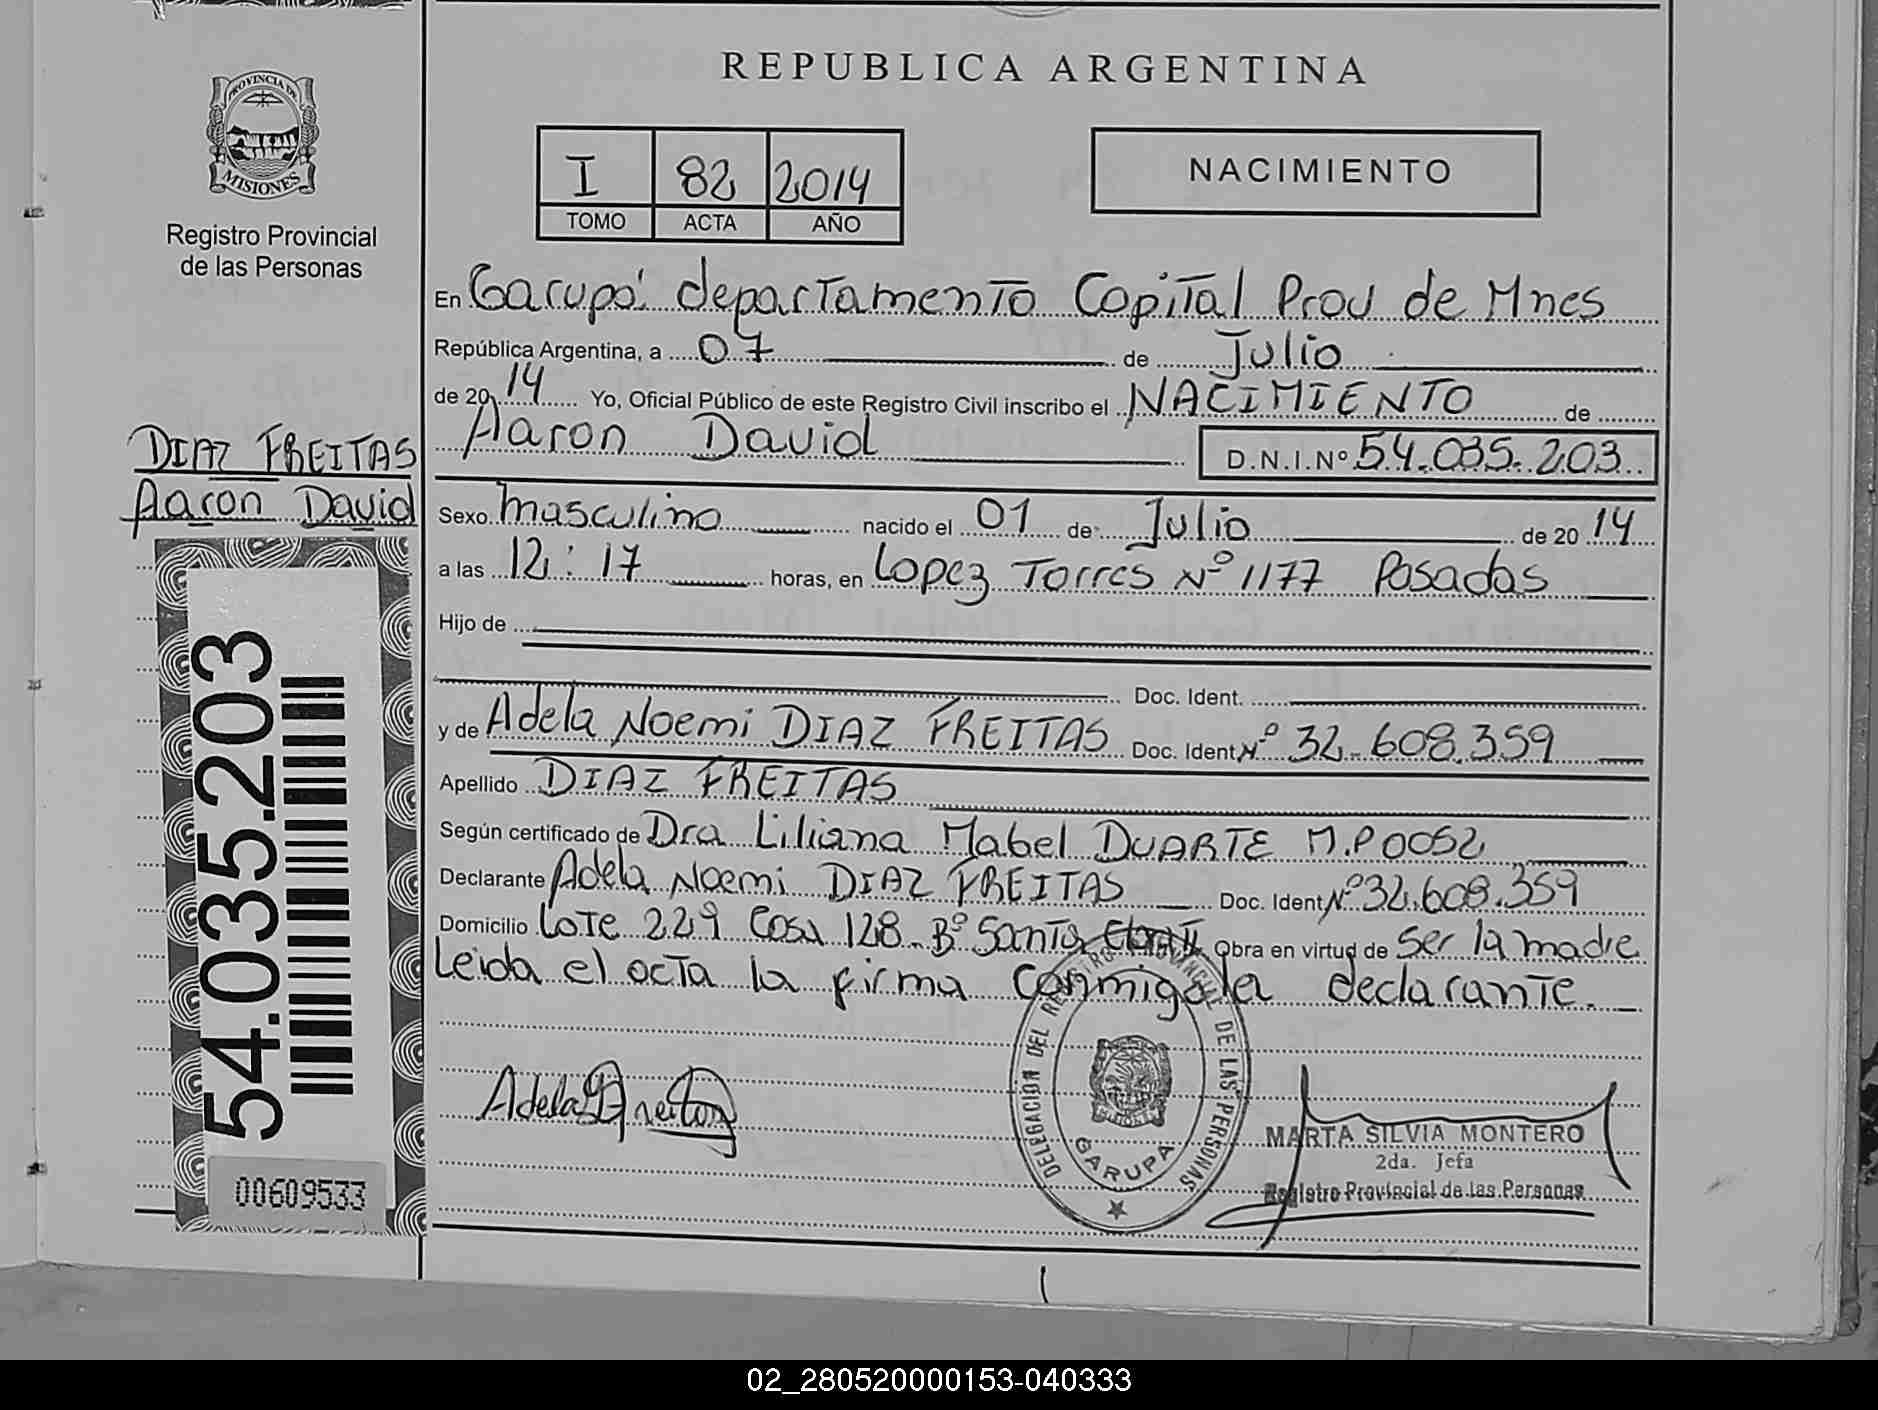 REPUBLICA ARGENTINA
PROVINCIA DE
MISIONES
Registro Provincial
de las Personas
I 82 2014
TOMO ACTA AÑO
NACIMIENTO
En Garupá departamento Capital Prov de Mnes
República Argentina, a 07 de Julio
de 2014 Yo, Oficial Público de este Registro Civil inscribo el NACIMIENTO de
Aaron David D.N.I.Nº 54.035.203
DIAZ FREITAS
Aaron David
Sexo masculino nacido el 01 de Julio de 2014
a las 12:17 horas, en Lopez Torres Nº 1177 Posadas
Hijo de
Doc. Ident.
y de Adela Noemi DIAZ FREITAS Doc. Ident Nº 32.608.359
Apellido DIAZ FREITAS
Según certificado de Dra Liliana Mabel DUARTE M.P 0052
Declarante Adela Noemi DIAZ FREITAS Doc. Ident Nº 32.608.359
Domicilio Lote 229 Casa 128 Bº Santa Clara II Obra en virtud de ser la madre
Leida el acta la firma conmigo la declarante.
54.035.203
00609533
Adela D Freitas
DELEGACION DEL REGISTRO PROVINCIAL DE LAS PERSONAS
GARUPA
MARTA SILVIA MONTERO
2da. Jefa
Registro Provincial de las Personas
02_280520000153-040333